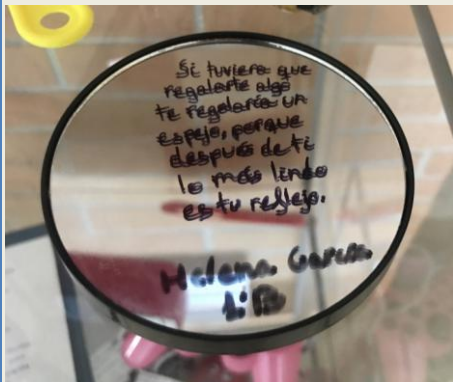 Si tuviera que
regalarte algo
te regalaría un
espejo, porque
después de ti
lo más lindo
es tu reflejo.
Helena García
1º B